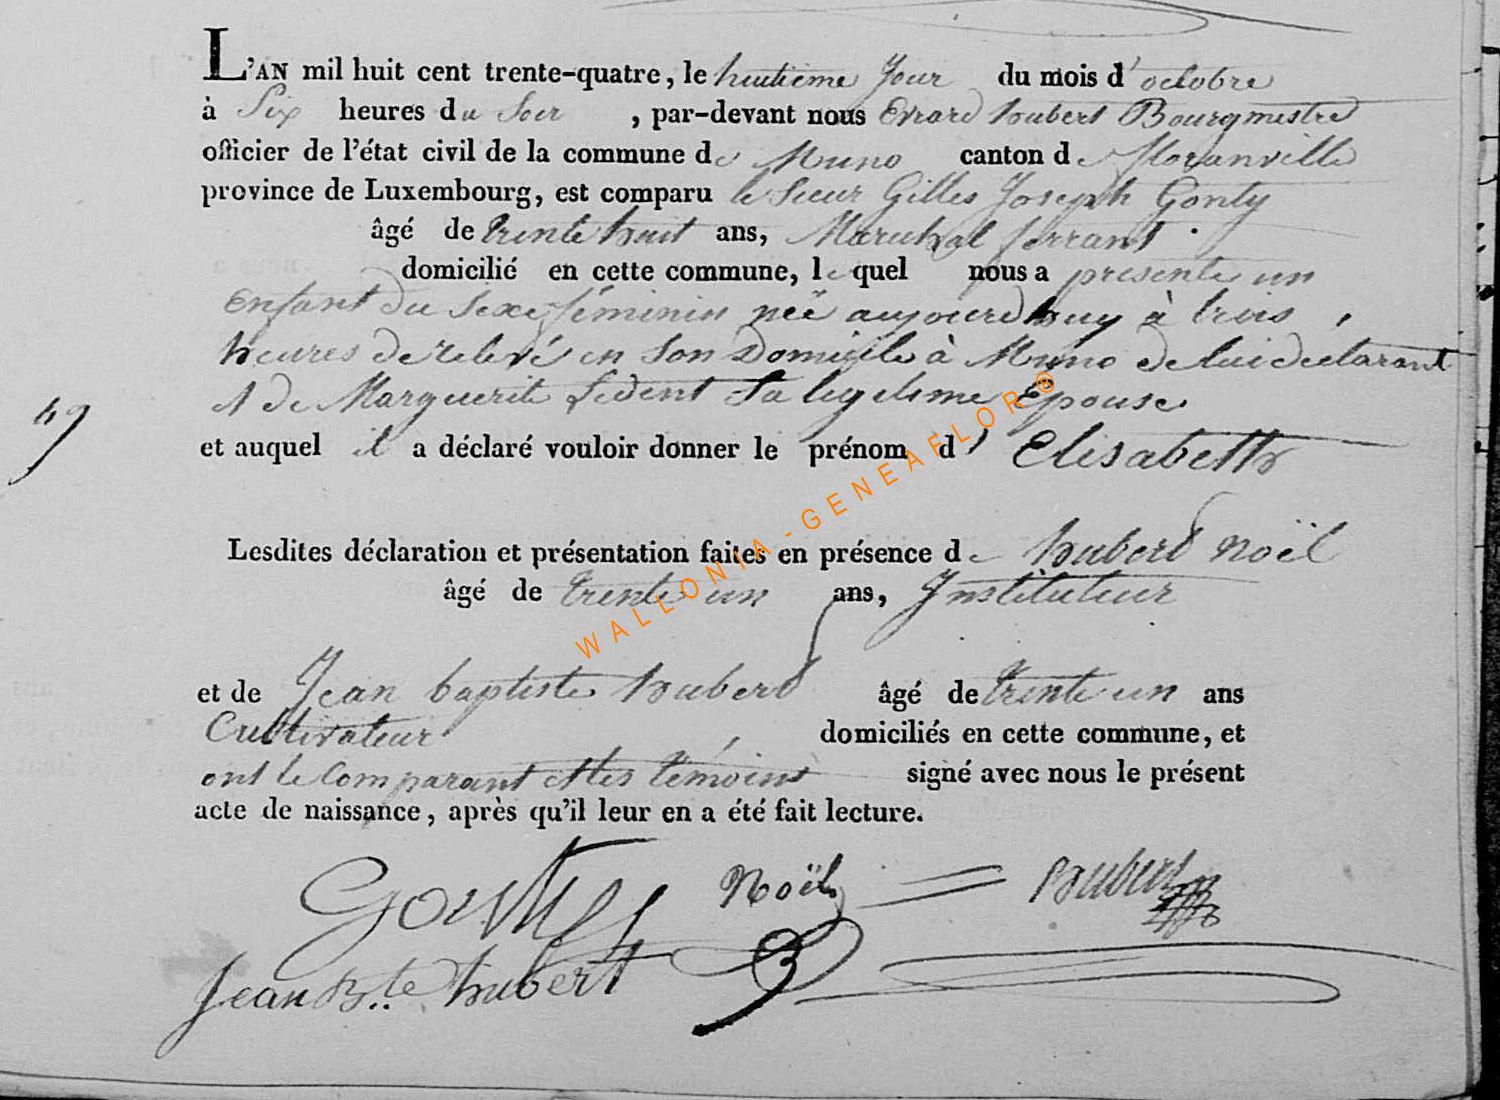 L'AN mil huit cent trente-quatre, le huitieme Jour du mois d'octobre
à Six heures du Soir , par-devant nous Evrard hubert Bourgmestre
officier de l'état civil de la commune de Muno canton de florenville
province de Luxembourg, est comparu le Sieur Gilles Joseph Gonty
âgé de trente huit ans, Marechal ferrant .
domicilié en cette commune, lequel nous a presente un
Enfant du Sexe féminin née aujourdhuy à trois
heures de relevé en Son Domicile à Muno de lui declarant
et de Marguerite fedent Sa legitime Epouse
49
et auquel il a déclaré vouloir donner le prénom d' Elisabeth
Lesdites déclaration et présentation faites en présence de hubert Noël
âgé de trente un ans, Instituteur
et de Jean baptiste hubert âgé de trente un ans
Cultivateur domiciliés en cette commune, et
ont le Comparant et les témoins signé avec nous le présent
acte de naissance, après qu'il leur en a été fait lecture.
Noël hubert
Jean Bte hubert
WALLONIA-GENEAFLOR®